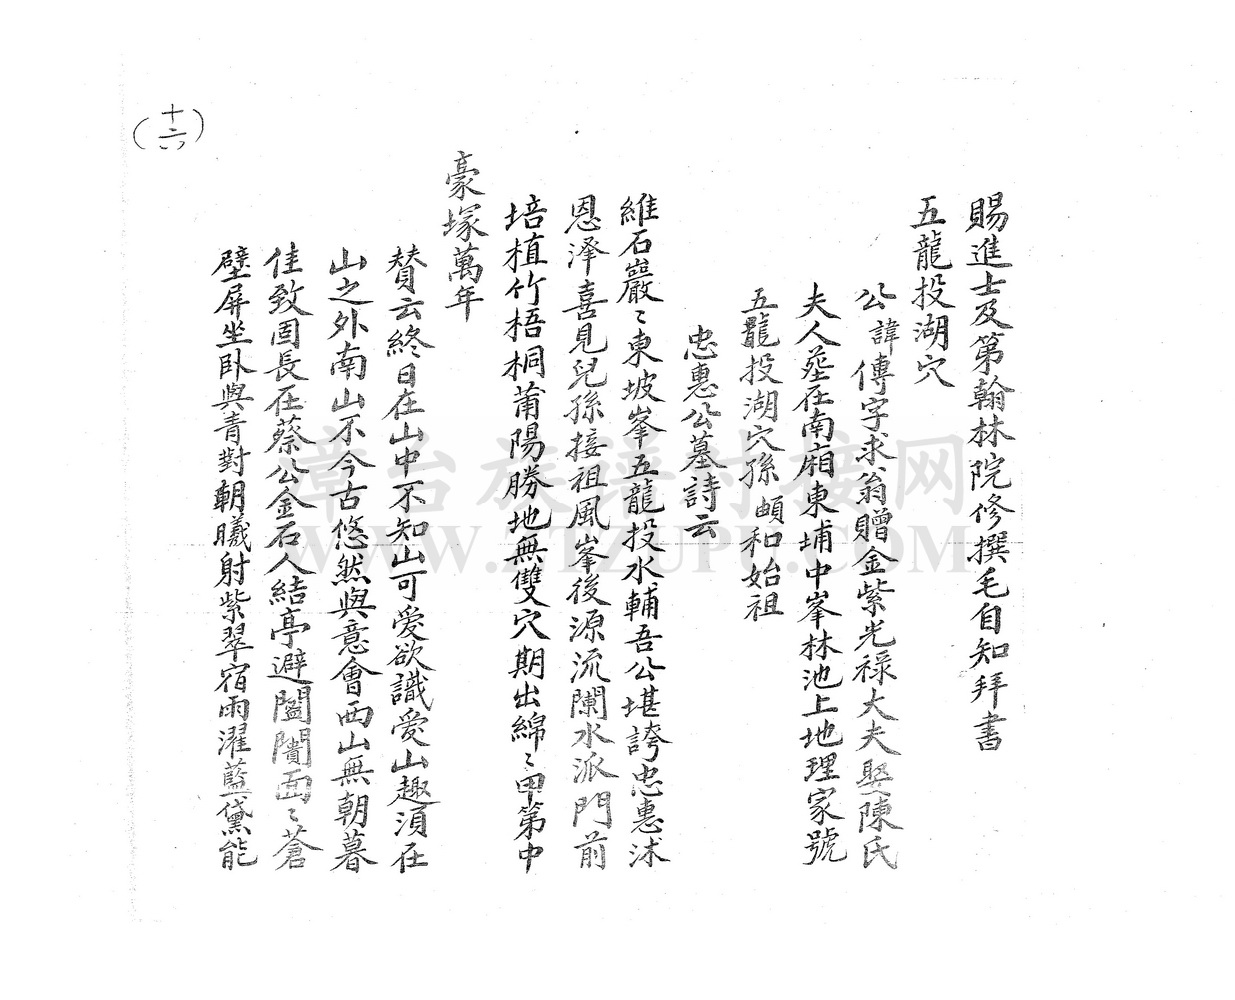 賜進士及第翰林院修撰毛自知拜書
五龍投湖穴
公諱傳字求翁贈金紫光祿大夫娶陳氏
夫人塟在南廂東埔中峯林池上地理家號
五龍投湖穴孫頔和始祖
忠惠公墓詩云
維石巖〻東坡峯五龍投水輔吾公堪誇忠惠沭
恩泽喜見兒孫接祖風峯後源流闌水派門前
培植竹梧桐莆陽勝地無雙穴期出綿〻甲第中
豪塚萬年
賛云終日在山中不知山可愛欲識愛山趣須在
山之外南山不今古悠然與意會西山無朝暮
佳致固長在蔡公金石人結亭避闤闠面〻蒼
壁屏坐卧與青對朝曦射紫翠宿雨濯藍黛能
(十六)
章台族譜對接网
WWW.ZTZUPU.COM